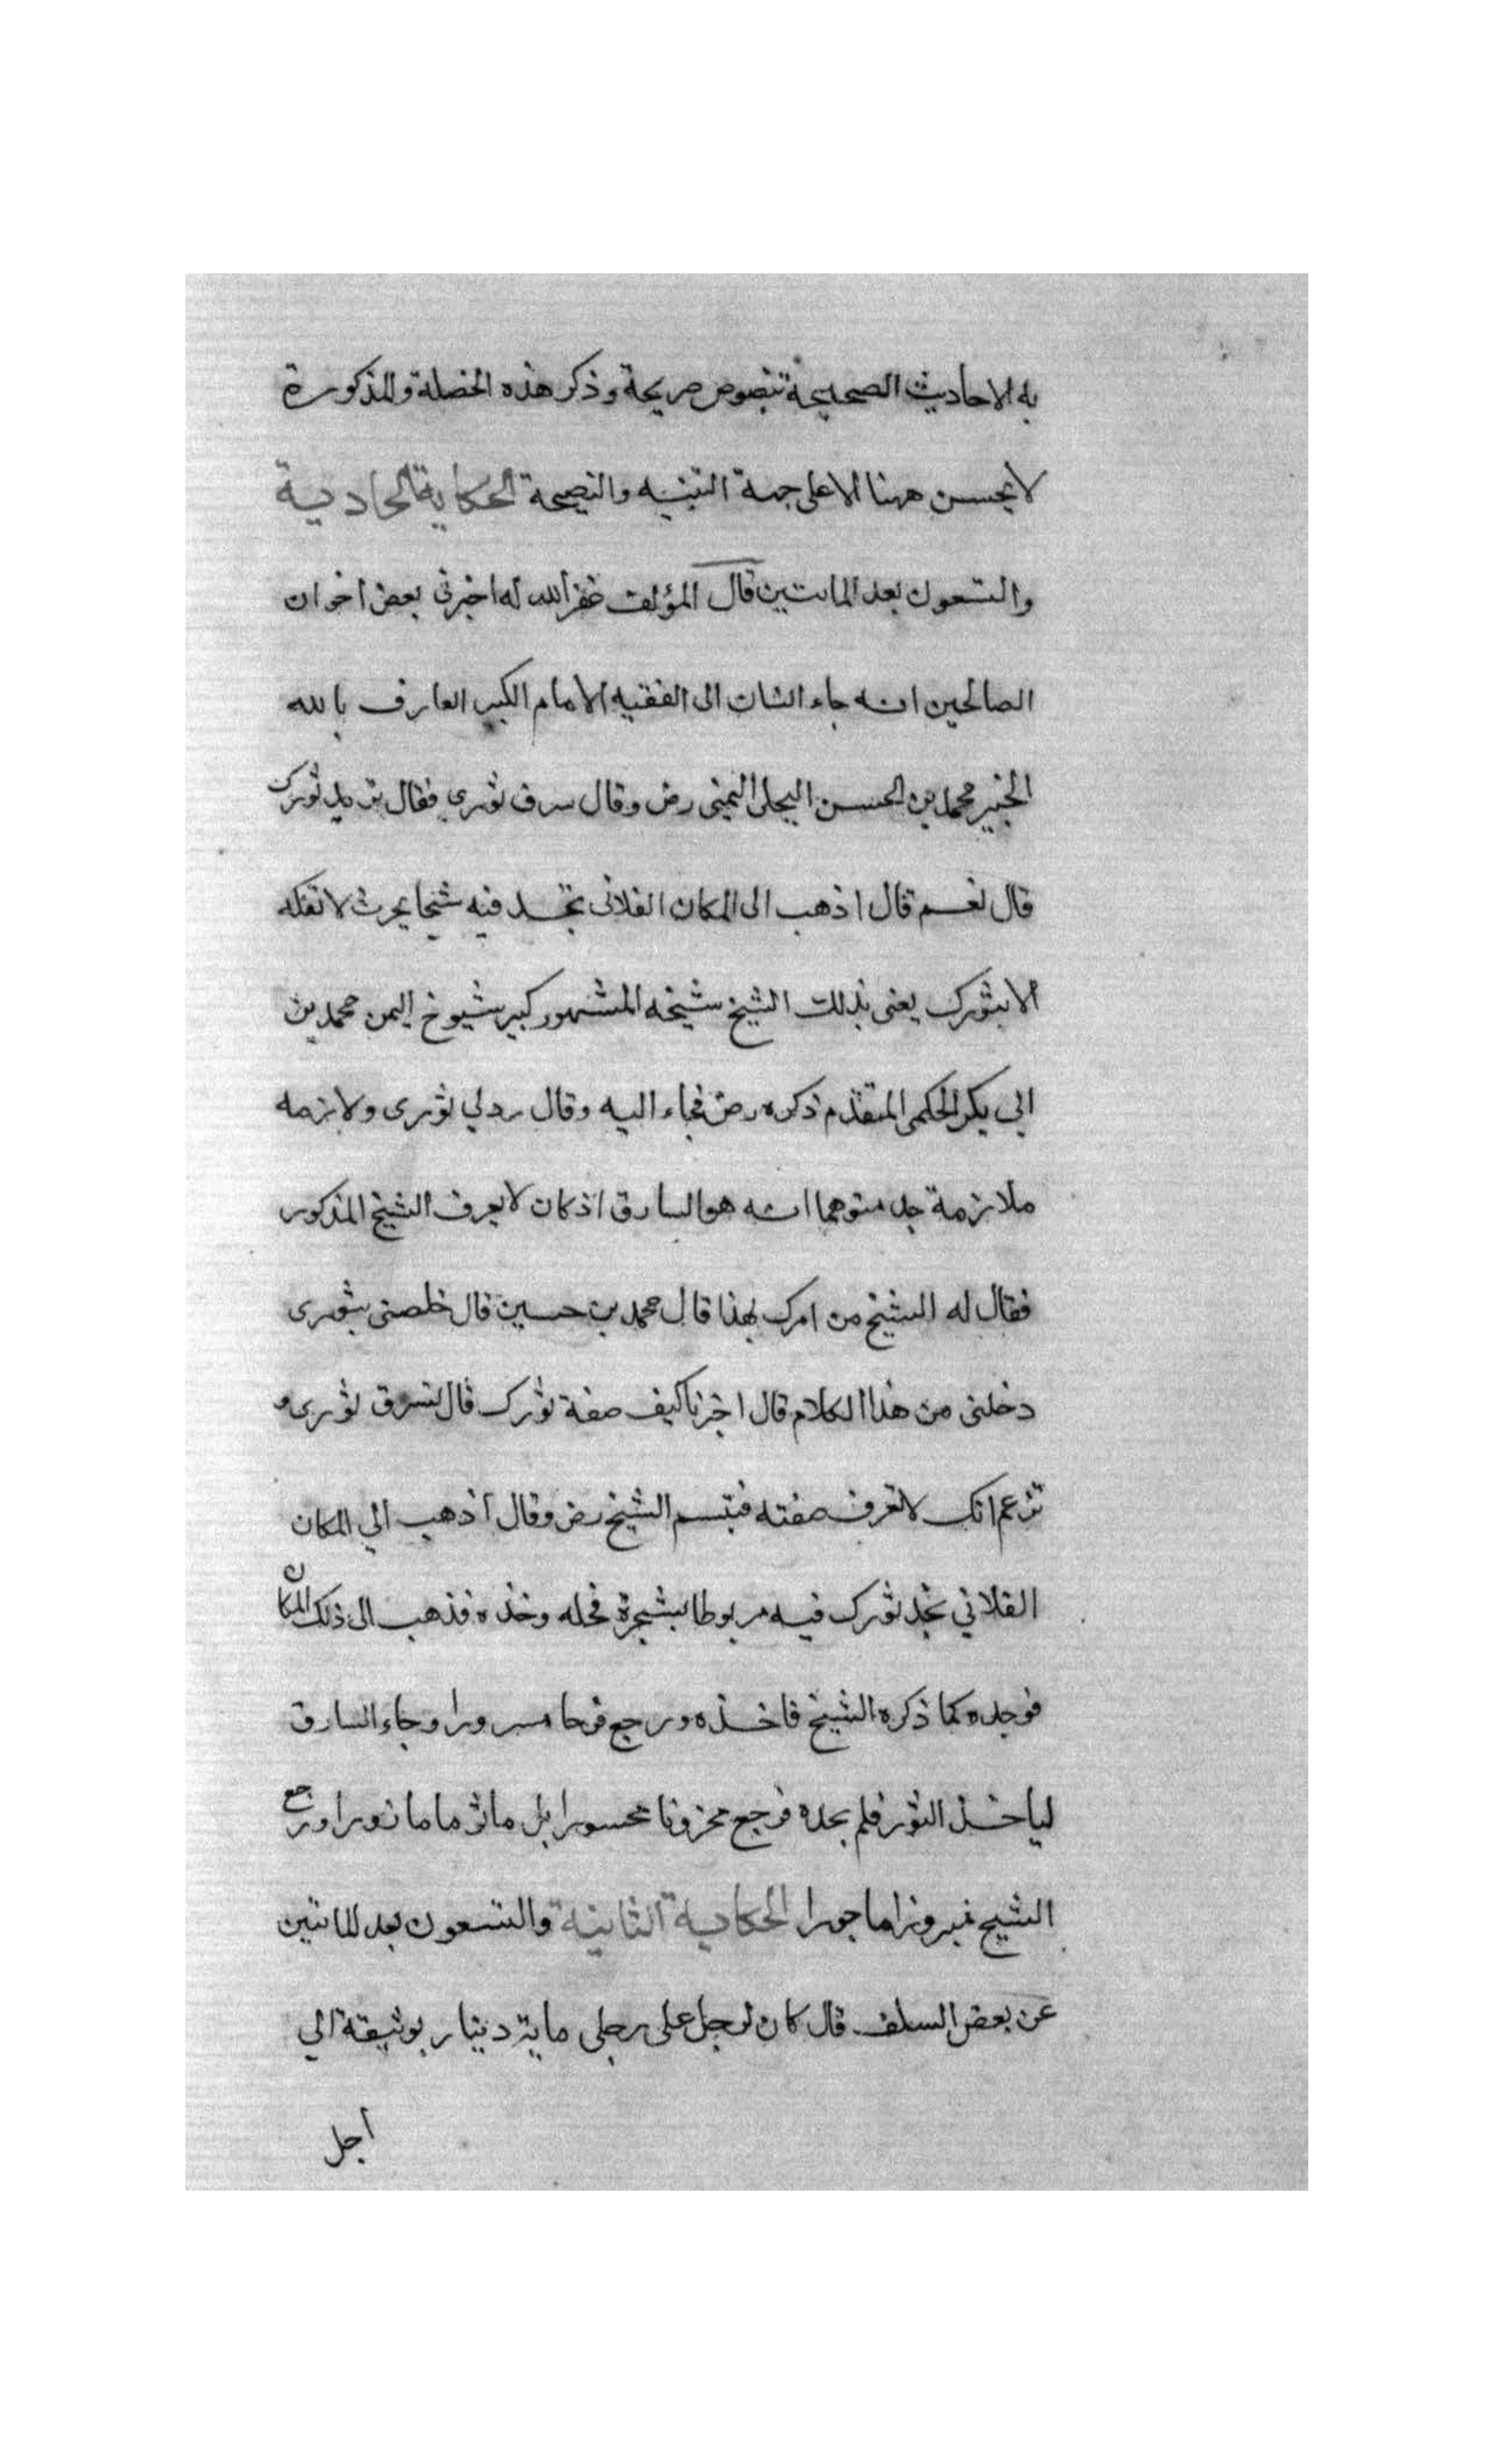 به الاحاديث الصحيحة بنصوص صريحة وذكر هذه الخصلة والمذكورة
لا يحسن ههنا الا على جهة التنبيه والنصيحة الحكاية الحادية
والتسعون بعد المائتين قال المؤلف غفر الله له اخبرني بعض اخوان
الصالحين انه جاء انسان الى الفقيه الامام الكبير العارف بالله
الخبير محمد بن الحسن البجلي اليمني رض وقال سرق ثوري فقال تريد ثورك
قال نعم قال اذهب الى المكان الفلاني تجد فيه شيخا يحرث لا تفكه
الا بثورك يعني بذلك الشيخ شيخه المشهور كبير شيوخ اليمن محمد بن
ابي بكر الحكمي المتقدم ذكره رض فجاء اليه وقال رد لي ثوري ولازمه
ملازمة جد متوهما انه هو السارق اذ كان لا يعرف الشيخ المذكور
فقال له الشيخ من امرك بهذا قال محمد بن حسين قال خلصني بثوري
دخلني من هذا الكلام قال اخبرنا كيف صفة ثورك قال تسرق ثوري و
تزعم انك لا تعرف صفته فتبسم الشيخ رض وقال اذهب الي المكان
الفلاني تجد ثورك فيه مربوطا بشجرة فحله وخذه فذهب الى ذلك المكان
فوجده كما ذكره الشيخ فاخذه ورجع فرحا مسرورا وجاء السارق
لياخذ الثور فلم يجده فرجع محزونا محسورا بل ماثوما مازورا ورجع
الشيخ مبرورا ماجورا الحكاية الثانية والتسعون بعد المائتين
عن بعض السلف قال كان لرجل على رجلي ماية دينار بوثيقة الي
اجل